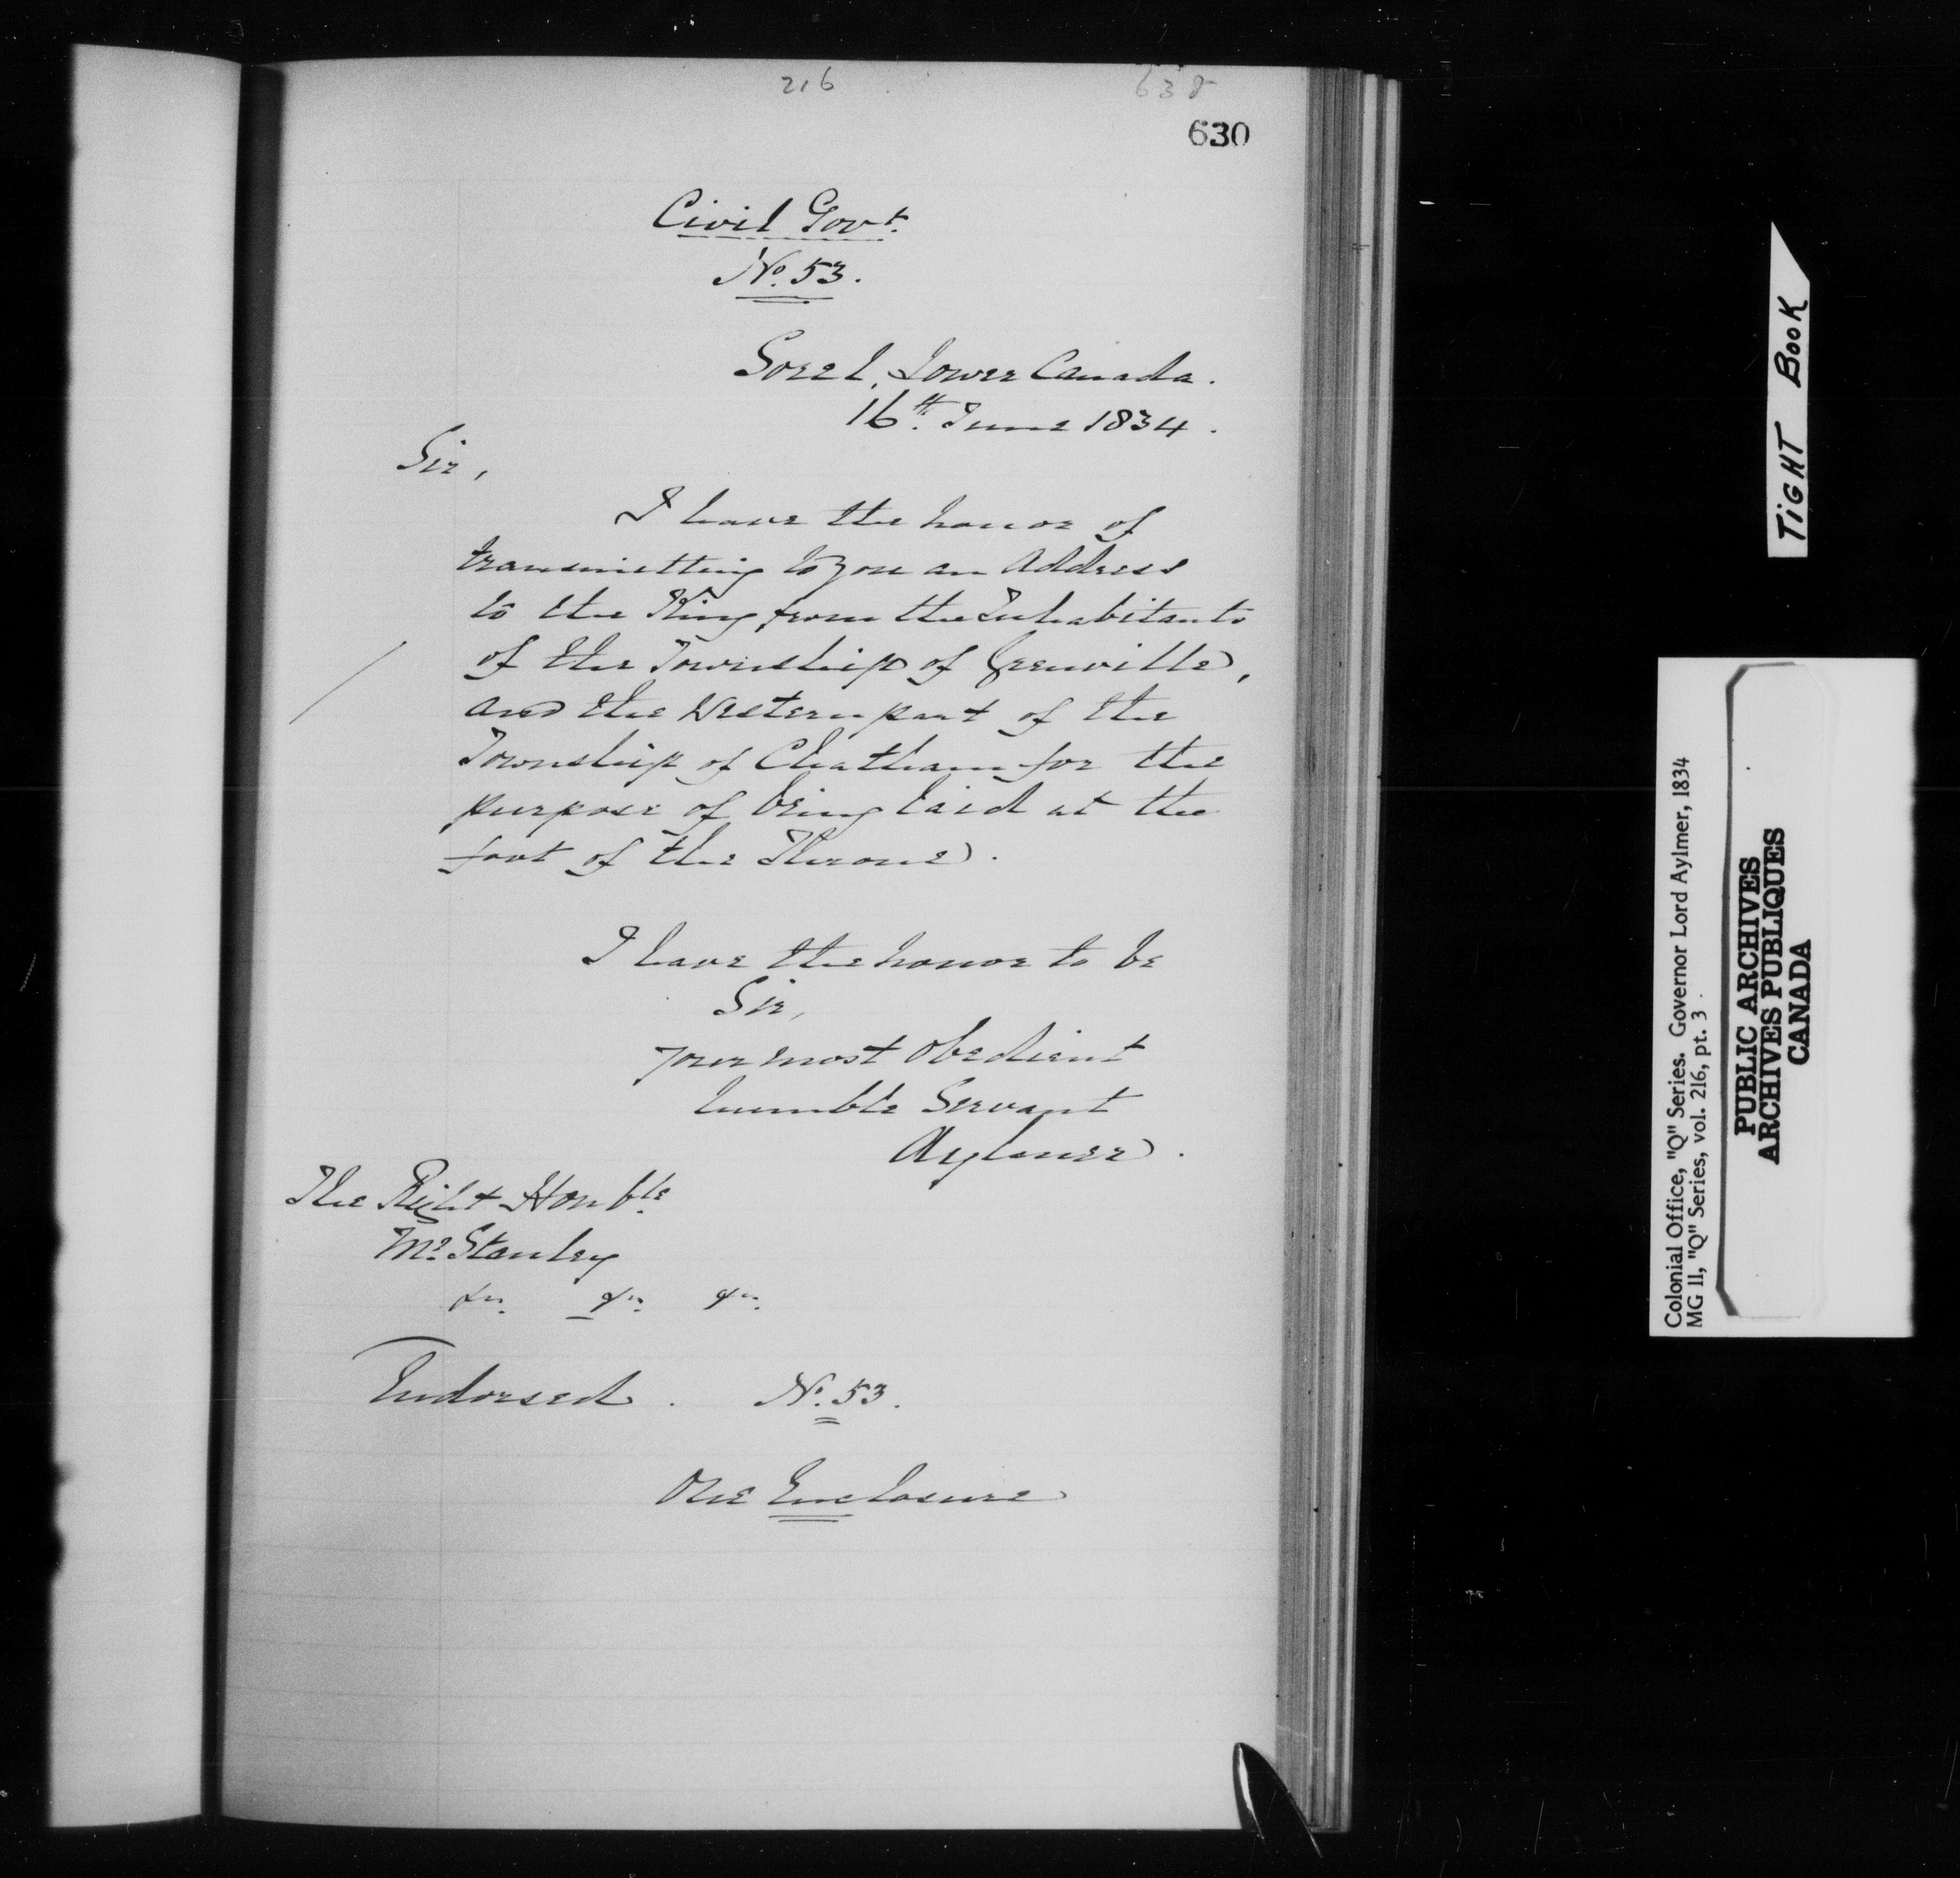 216
638
630
Civil Govt.
No. 53.
Sorel, Lower Canada.
16th. June 1834.
Sir,
I have the honor of
transmitting to you an Address
to the King from the Inhabitants
of the Township of Grenville,
and the Western part of the
Township of Chatham for the
purpose of being laid at the
foot of the Throne.
I have the honor to be
Sir,
your most obedient
humble Servant
Aylmer.
The Right Honble.
Mr. Stanley
&c. &c. &c.
Endorsed. No. 53.
One Enclosure
TIGHT BOOK
Colonial Office, "Q" Series. Governor Lord Aylmer, 1834
MG 11, "Q" Series, vol. 216, pt. 3
PUBLIC ARCHIVES
ARCHIVES PUBLIQUES
CANADA